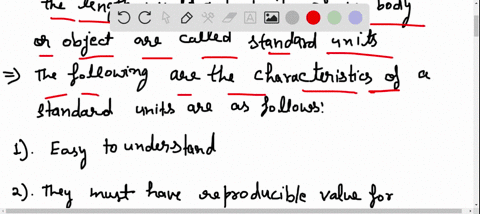 the body
or object are called standard units
⇒ The following are the characteristics of a
standard units are as follows:
1). Easy to understand
2). They must have reproducible value for